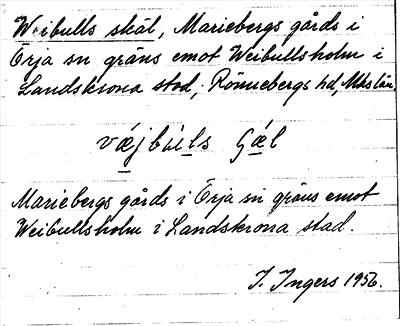 Weibulls skäl, Mariebergs gårds i
Örja sn gräns emot Weibullsholm i
Landskrona stad; Rönnebergs hd, Mlhs län.
väjbúls sjæl
Mariebergs gårds i Örja sn gräns emot
Weibullsholm i Landskrona stad.
I. Ingers 1956.